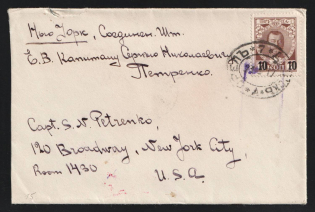 Нью Іорк, Соединен. Шт.
Е. В. Капитану Сергею Николаевичу
Петренко.
10 10
Capt. S. N. Petrenko,
120 Broadway, New York City,
Room 1430
U. S. A.